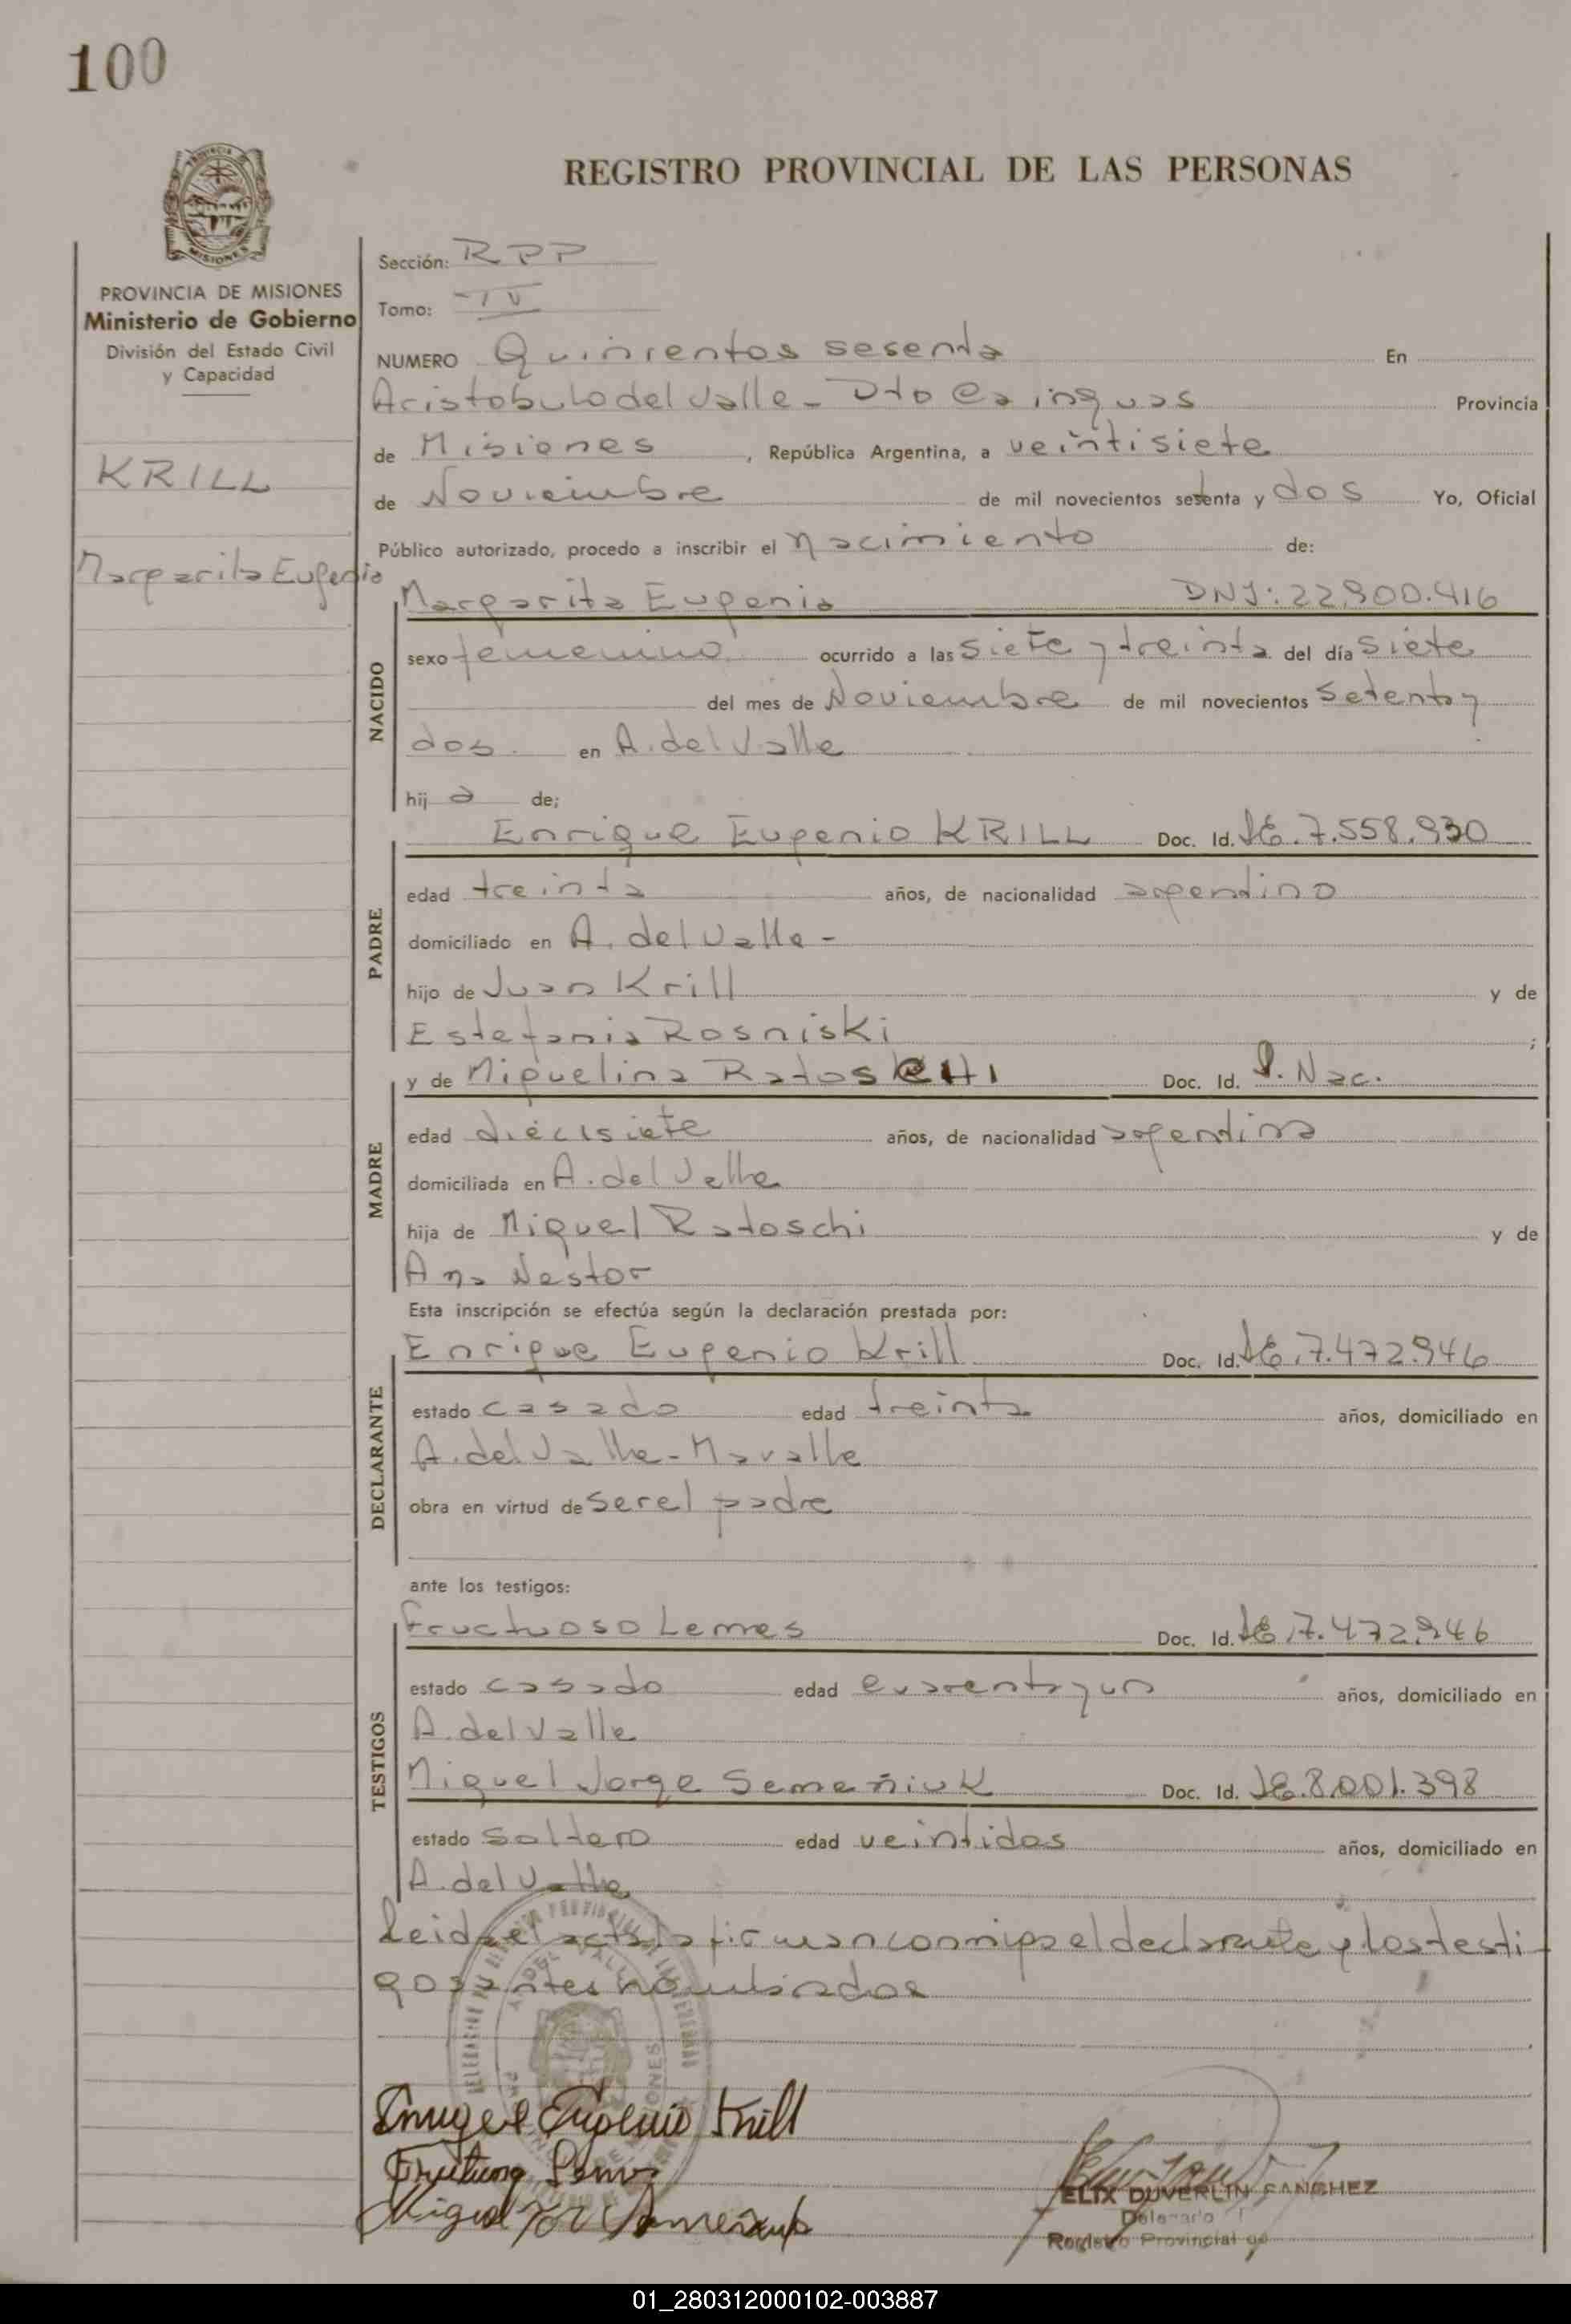 100
REGISTRO PROVINCIAL DE LAS PERSONAS
PROVINCIA DE MISIONES
Ministerio de Gobierno
División del Estado Civil
y Capacidad
KRILL
Margarita Eugenia
Sección: RPP
Tomo: IV
NUMERO Quinientos sesenta En
Aristobulo del Valle - Dto Cainguas Provincia
de Misiones, República Argentina, a veintisiete
de Noviembre de mil novecientos setenta y dos Yo, Oficial
Público autorizado, procedo a inscribir el nacimiento de:
Margarita Eugenia DNI: 22.900.416
NACIDO
sexo femenino ocurrido a las siete y treinta del día siete
del mes de Noviembre de mil novecientos setenta y
dos en A. del Valle
hij a de;
Enrique Eugenio KRILL Doc. Id. LE. 7.558.930
PADRE
edad treinta años, de nacionalidad argentino
domiciliado en A. del Valle -
hijo de Juan Krill y de
Estefania Rosniski ;
y de Miguelina RatosCHI Doc. Id. P. Nac.
MADRE
edad diecisiete años, de nacionalidad argentina
domiciliada en A. del Valle
hija de Miguel Ratoschi y de
Ana Nestor
Esta inscripción se efectúa según la declaración prestada por:
Enrique Eugenio Krill Doc. Id. LE. 7.472.946
DECLARANTE
estado casado edad treinta años, domiciliado en
A. del Valle -
obra en virtud de ser el padre
ante los testigos:
Fructuoso Lemes Doc. Id. LE. 7.472.946
TESTIGOS
estado casado edad cuarenta y un años, domiciliado en
A. del Valle
Miguel Jorge Semeñiuk Doc. Id. LE. 8.001.398
estado soltero edad veintidos años, domiciliado en
A. del Valle
Leida el acta la firman conmigo el declarante y los testi
gos antes nombrados
Enrique Eugenio Krill
ELIX DUVERLIN SANCHEZ
Delegado
Registro Provincial de
01_280312000102-003887